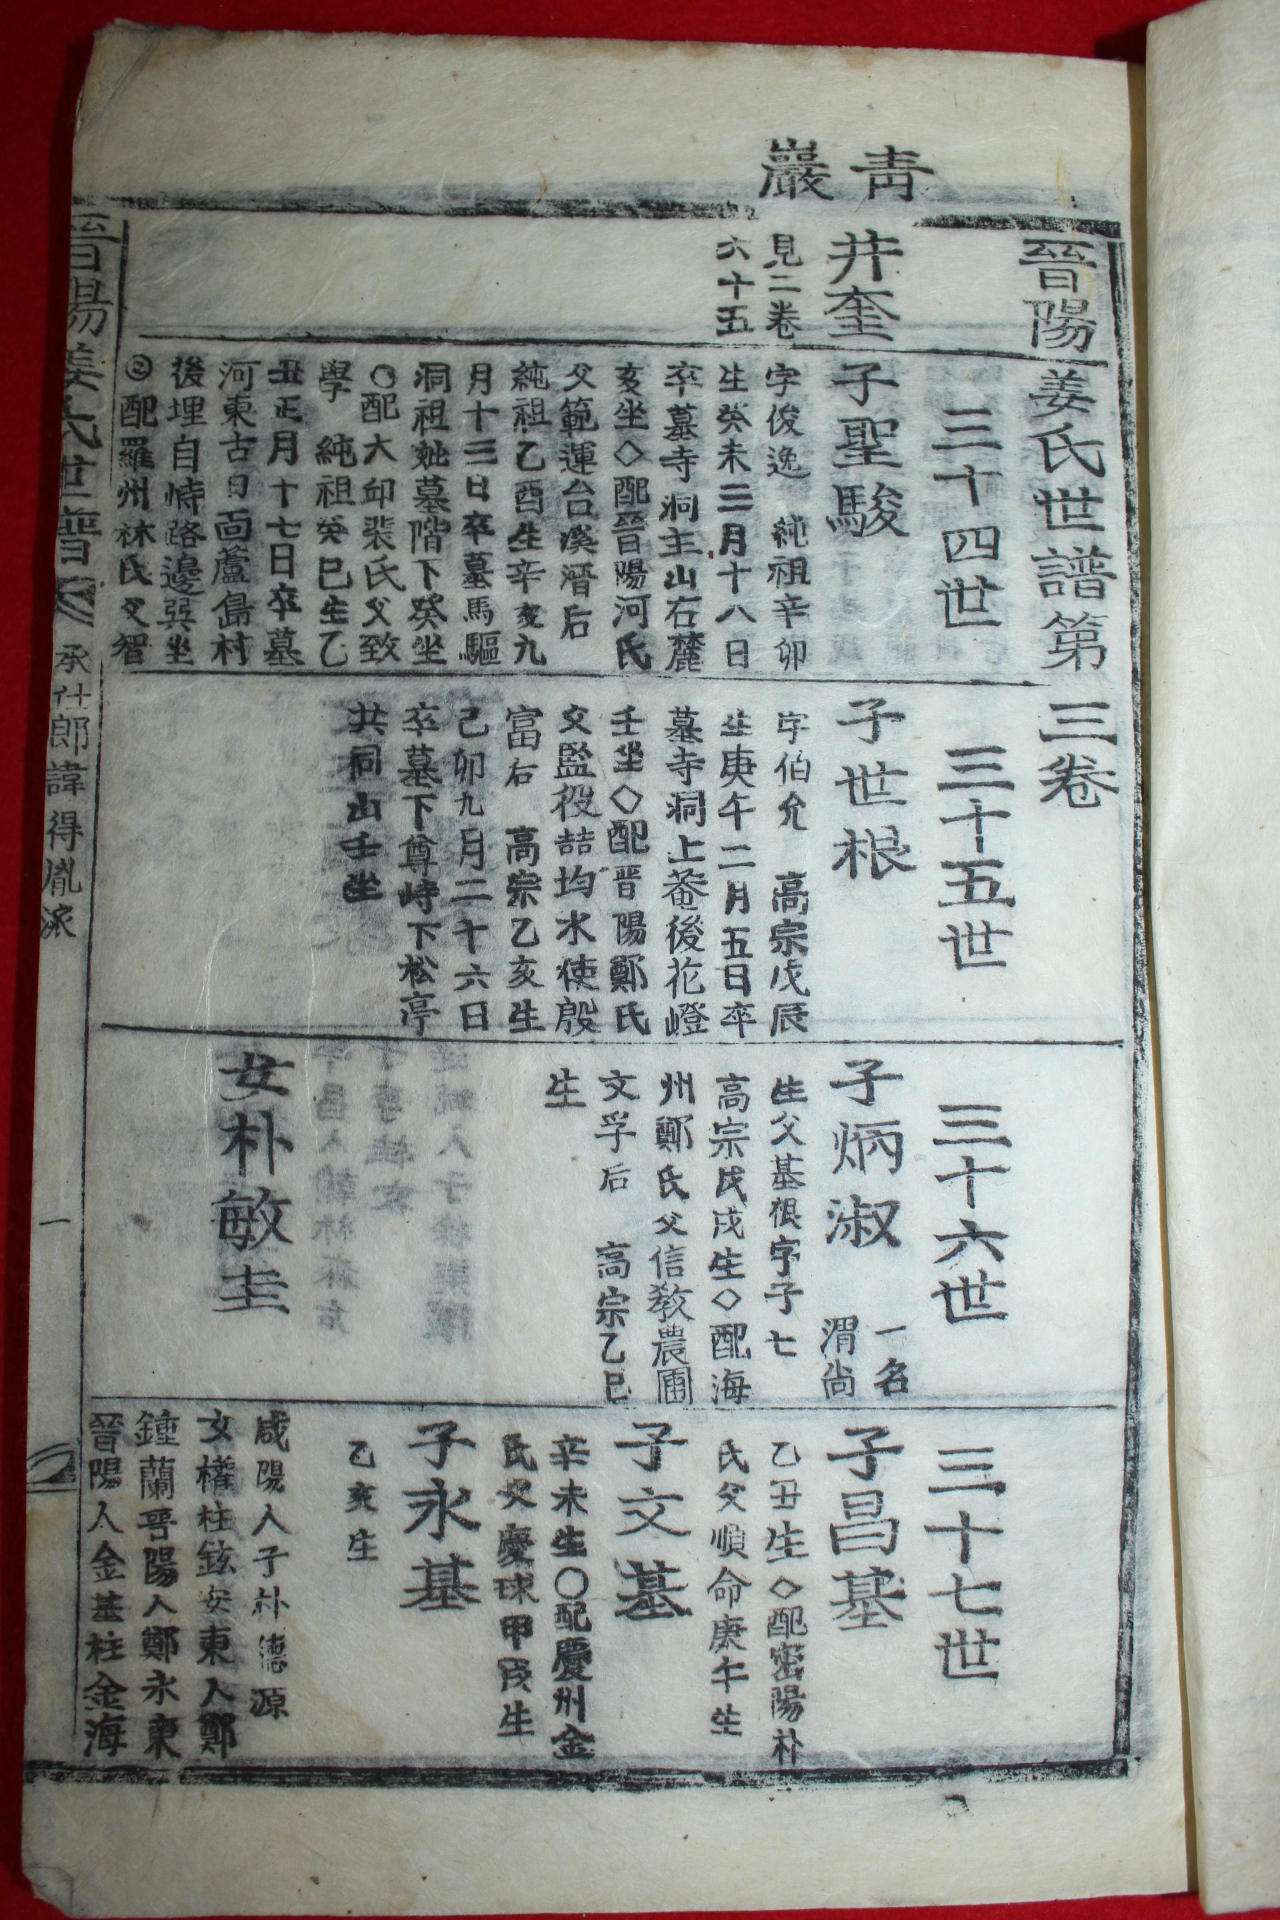 靑巖
晉陽姜氏世譜第三卷
三十四世
三十五世
三十六世
三十七世
井奎
見二卷
六十五
子聖駿
字俊逸 純祖辛卯
生癸未三月十八日
卒墓寺洞主山右麓
亥坐◇配晉陽河氏
父範運台溪溍后
純祖乙酉生辛亥九
月十三日卒墓馬驅
洞祖妣墓階下癸坐
○配大邱裴氏父致
學 純祖癸巳生乙
丑正月十七日卒墓
河東古日面蘆島村
後埋自恃路邊巽坐
配羅州林氏父智
子世根
字伯允 高宗戊辰
生庚午二月五日卒
墓寺洞上菴後花嶝
壬坐◇配晋陽鄭氏
父監役喆均水使殷
富后 高宗乙亥生
己卯九月二十六日
卒墓下尊峙下松亭
共祠山壬坐
子炳淑
一名
渭尙
生父基根字子七
高宗戊戌生◇配海
州鄭氏父信敎農圃
文孚后 高宗乙巳
生
女朴敏圭
子昌基
乙丑生◇配密陽朴
氏父順命庚午生
子文基
辛未生○配慶州金
氏父慶球甲戌生
子永基
乙亥生
咸陽人子朴德源
女權柱鉉安東人鄭
鍾蘭晋陽人鄭永東
晉陽人金基柱金海
晉陽姜氏世譜
承仕郎諱得胤派
一